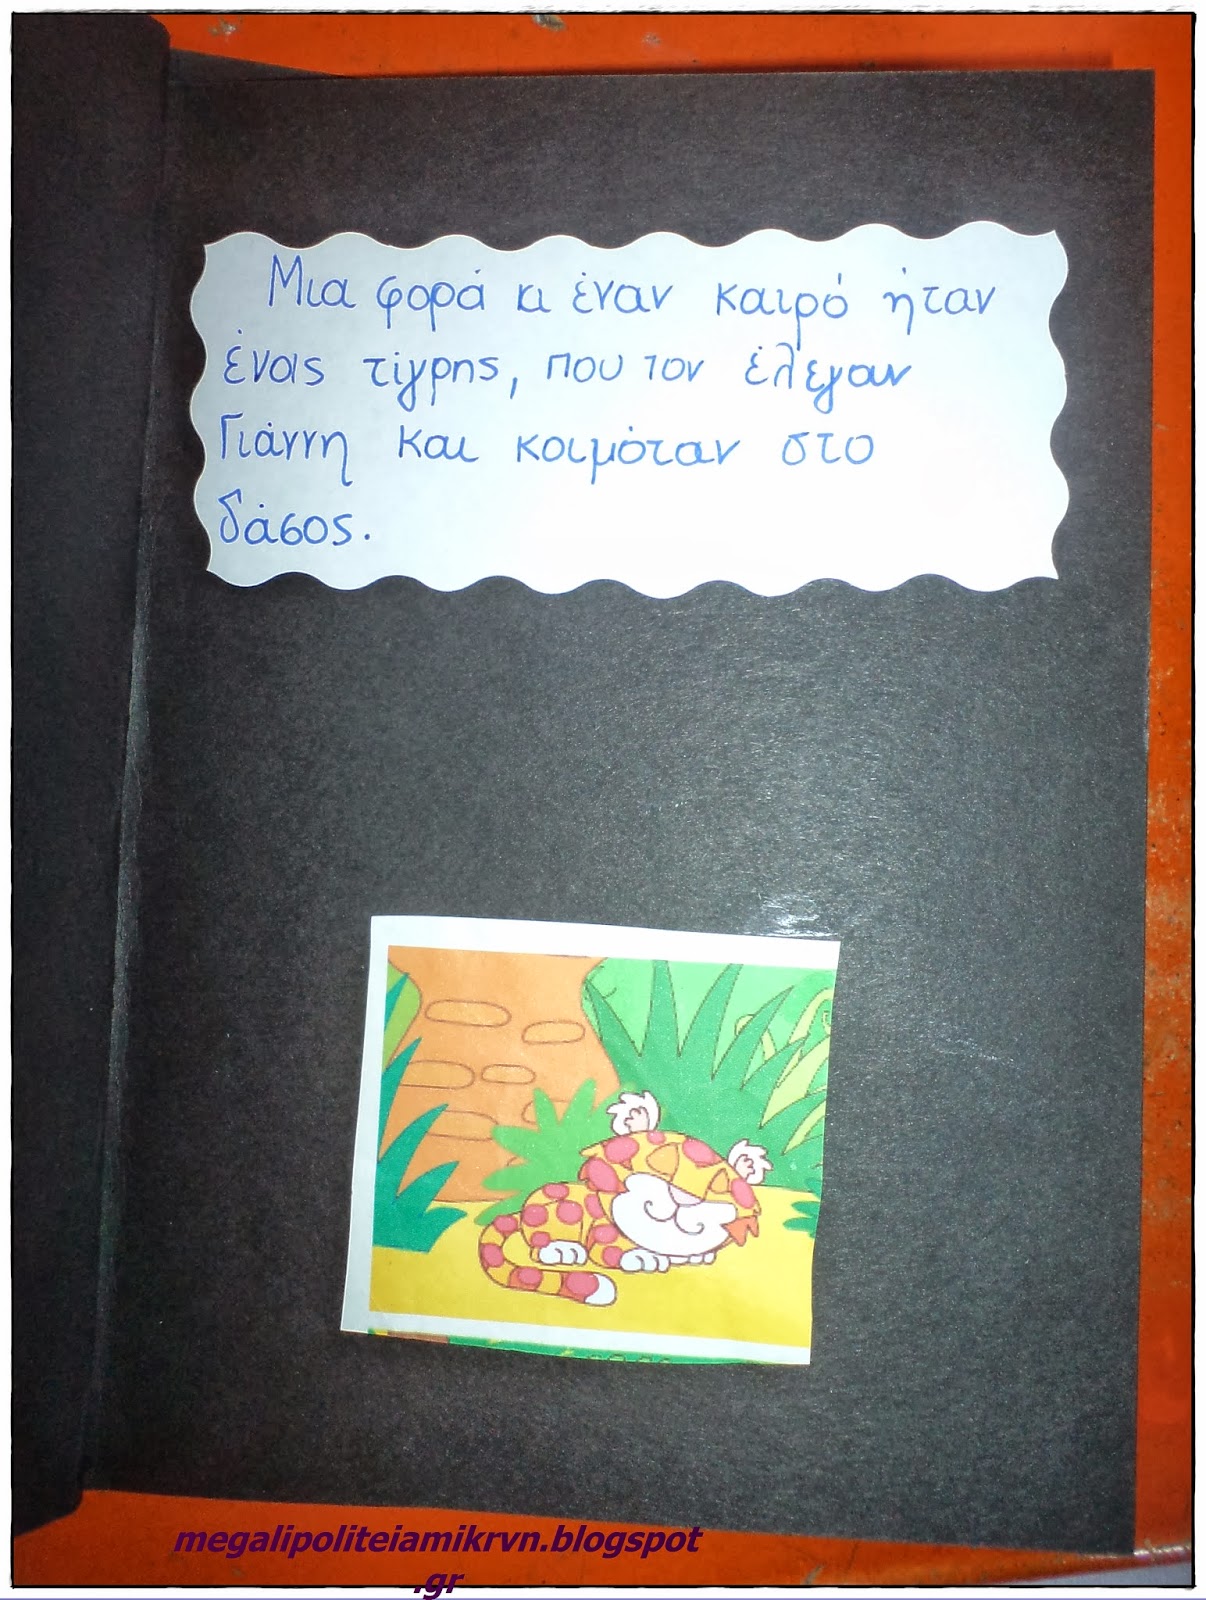 Μια φορά κι έναν καιρό ήταν
ένας τίγρης, που τον έλεγαν
Γιάννη και κοιμόταν στο
δάσος.
megalipoliteiamikrvn.blogspot
.gr